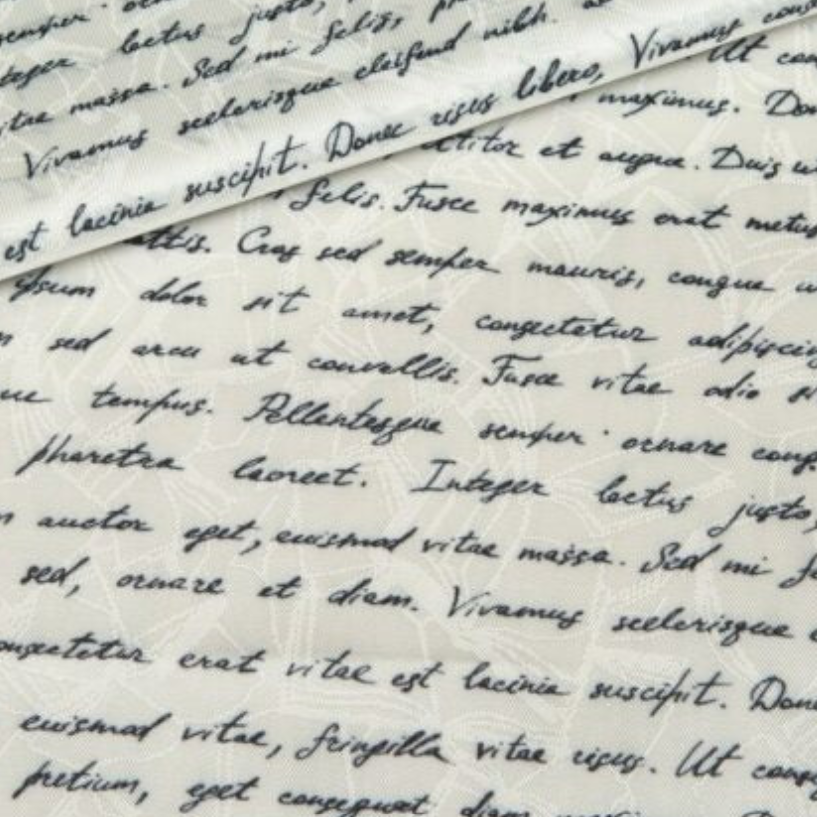 semper
lectus justo,
vitae massa. Sed mi felis,
Vivamus scelerisque eleifend nibh.
est lacinia suscipit. Donec risus libero, Vivamus
Ut
maximus.
et augue. Duis
felis. Fusce maximus erat metus
Cras sed semper mauris, congue
ipsum dolor sit amet, consectetur adipiscing
sed arcu ut convallis. Fusce vitae odio
tempus. Pellentesque semper ornare
pharetra laoreet. Integer lectus justo,
auctor eget, euismod vitae massa. Sed mi
sed, ornare et diam. Vivamus scelerisque
consectetur erat vitae est lacinia suscipit.
euismod vitae, fringilla vitae risus. Ut
pretium, eget consequat diam